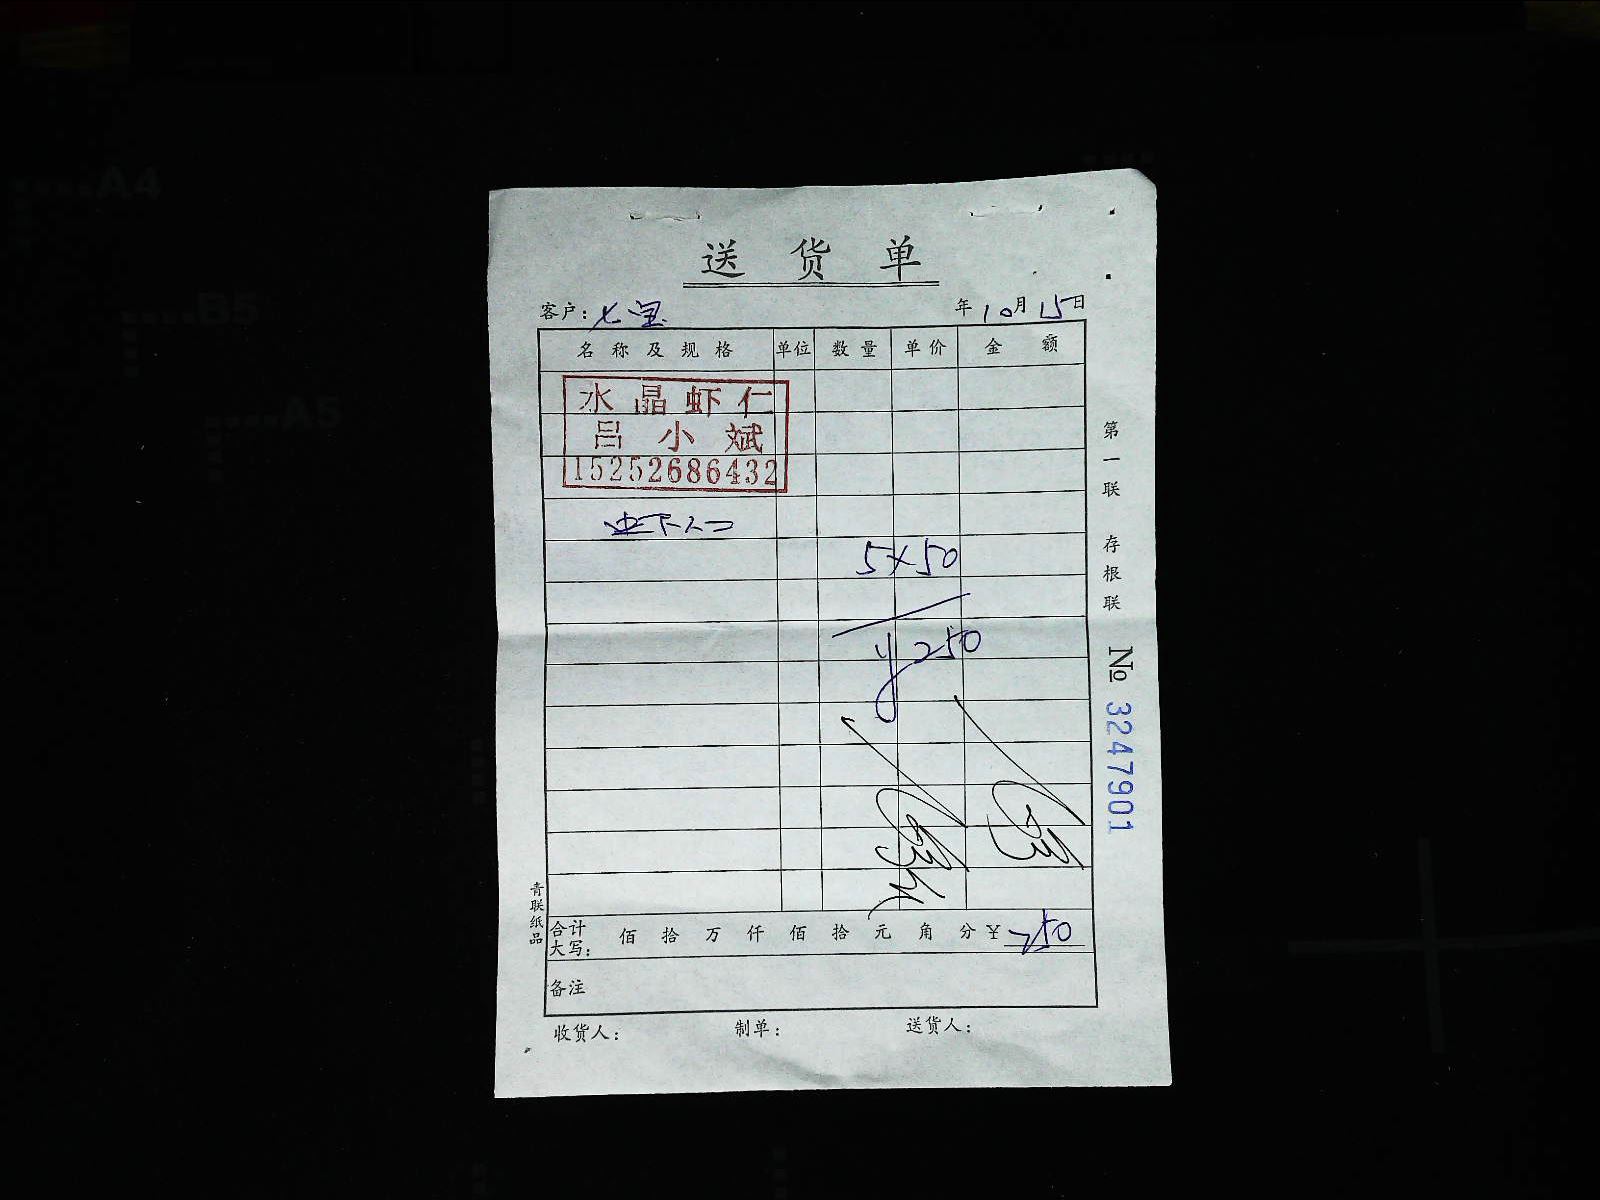 送 货 单
客户: 七宝 年 10 月 15 日
名 称 及 规 格 单位 数 量 单 价 金 额
水 晶 虾 仁
吕 小 斌
15252686432
5×50
¥250
合计大写: 佰 拾 万 仟 佰 拾 元 角 分 ¥ 250
备注
收货人: 制单: 送货人:
第一联 存根联
№ 3247901
青联纸品
A4
B5
A5